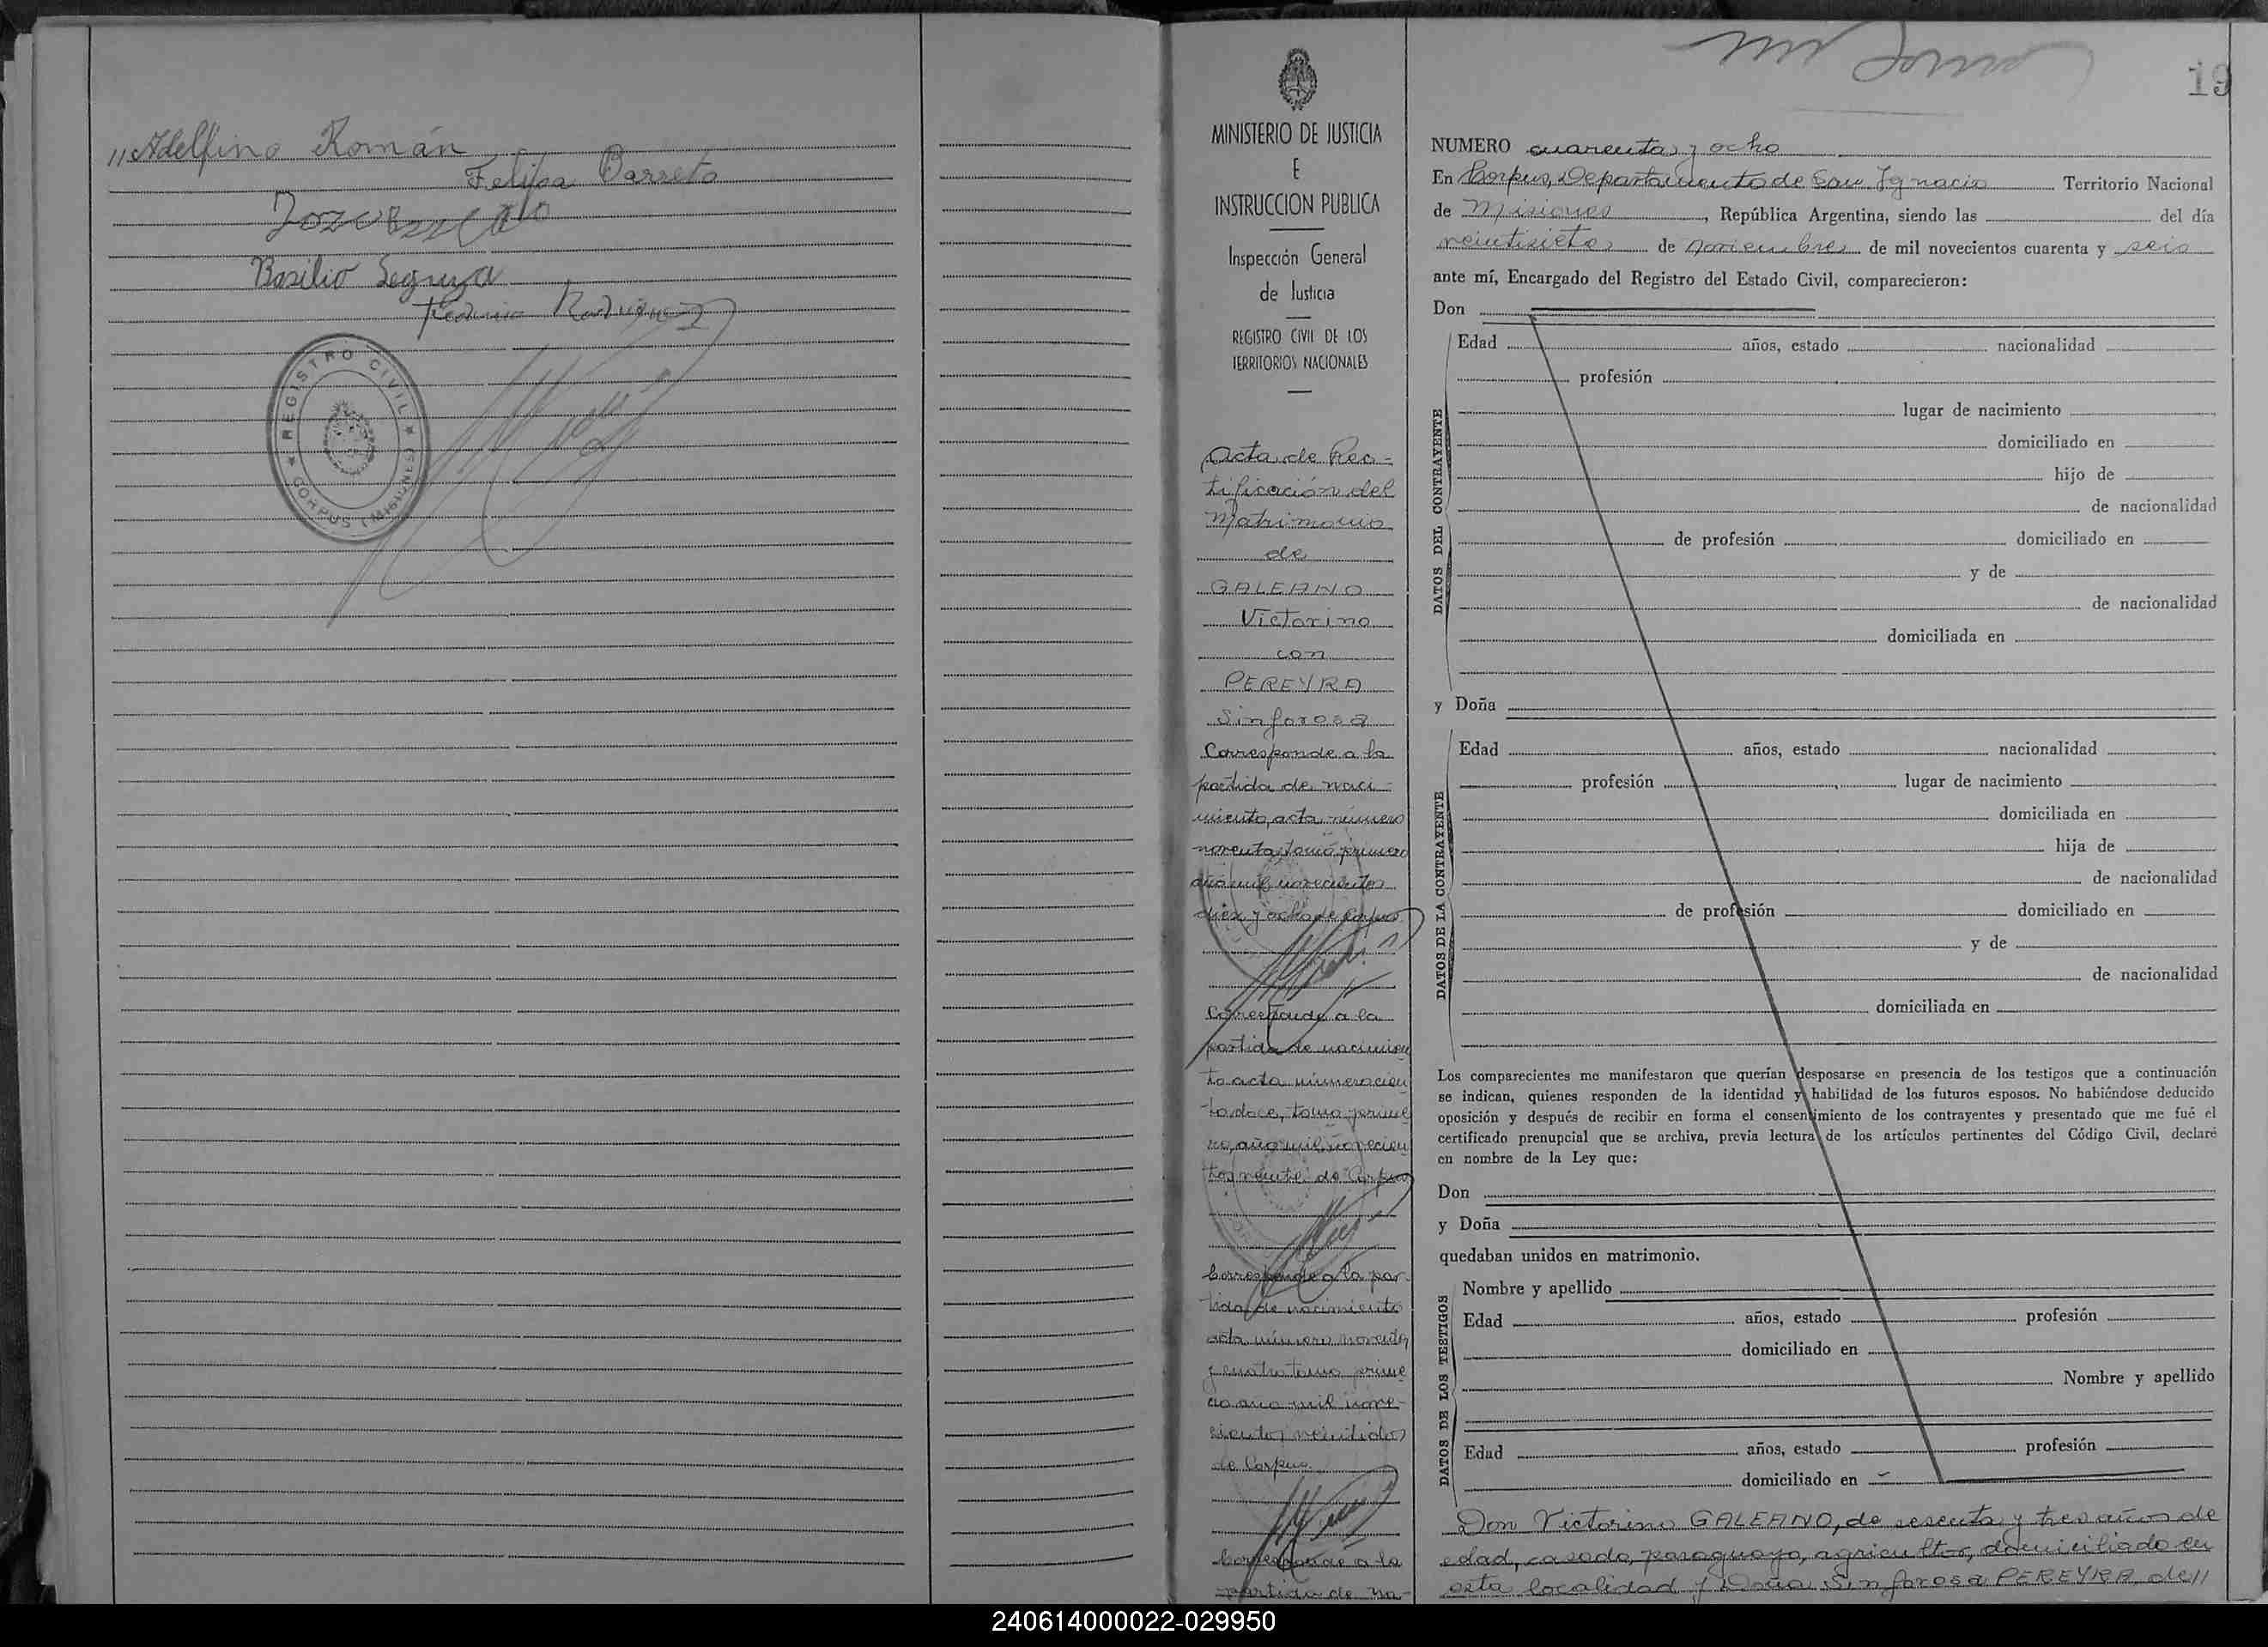 //Adelfino Román
Felipa Barreto
Basilio Segovia
Rodriguez
★ REGISTRO CIVIL ★
CORPUS (MISIONES)
MINISTERIO DE JUSTICIA
E
INSTRUCCION PUBLICA
Inspección General
de Justicia
REGISTRO CIVIL DE LOS
TERRITORIOS NACIONALES
Acta de Rec-
tificación del
Matrimonio
de
GALEANO
Victorino
con
PEREYRA
Sinforosa
Corresponde a la
partida de naci-
miento, acta número
noventa, tomo primero
año mil novecientos
diez y ocho de Corpus
Corresponde a la
partida de nacimien
to acta número cien
to doce, tomo prime
ro, año mil novecien
tos veinte de Corpus
Corresponde a la par-
tida de nacimiento
acta número noventa
y cuatro tomo prime
ro año mil nove-
cientos veintidos
de Corpus.
Corresponde a la
partida de na-
19
NUMERO cuarenta y ocho
En Corpus, Departamento de San Ignacio Territorio Nacional
de Misiones, República Argentina, siendo las del día
veintisiete de noviembre de mil novecientos cuarenta y seis
ante mí, Encargado del Registro del Estado Civil, comparecieron:
Don
DATOS DEL CONTRAYENTE
Edad años, estado nacionalidad
profesión
lugar de nacimiento
domiciliado en
hijo de
de nacionalidad
de profesión domiciliado en
y de
de nacionalidad
domiciliada en
y Doña
DATOS DE LA CONTRAYENTE
Edad años, estado nacionalidad
profesión lugar de nacimiento
domiciliada en
hija de
de nacionalidad
de profesión domiciliado en
y de
de nacionalidad
domiciliada en
Los comparecientes me manifestaron que querían desposarse en presencia de los testigos que a continuación
se indican, quienes responden de la identidad y habilidad de los futuros esposos. No habiéndose deducido
oposición y después de recibir en forma el consentimiento de los contrayentes y presentado que me fué el
certificado prenupcial que se archiva, previa lectura de los artículos pertinentes del Código Civil, declaré
en nombre de la Ley que:
Don
y Doña
quedaban unidos en matrimonio.
DATOS DE LOS TESTIGOS
Nombre y apellido
Edad años, estado profesión
domiciliado en
Nombre y apellido
Edad años, estado profesión
domiciliado en
Don Victorino GALEANO, de sesenta y tres años de
edad, casado, paraguayo, agricultor, domiciliado en
esta localidad y Doña Sinforosa PEREYRA, de//
240614000022-029950